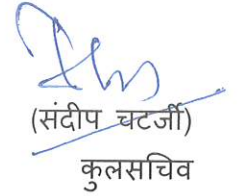 (संदीप चटर्जी)
कुलसचिव